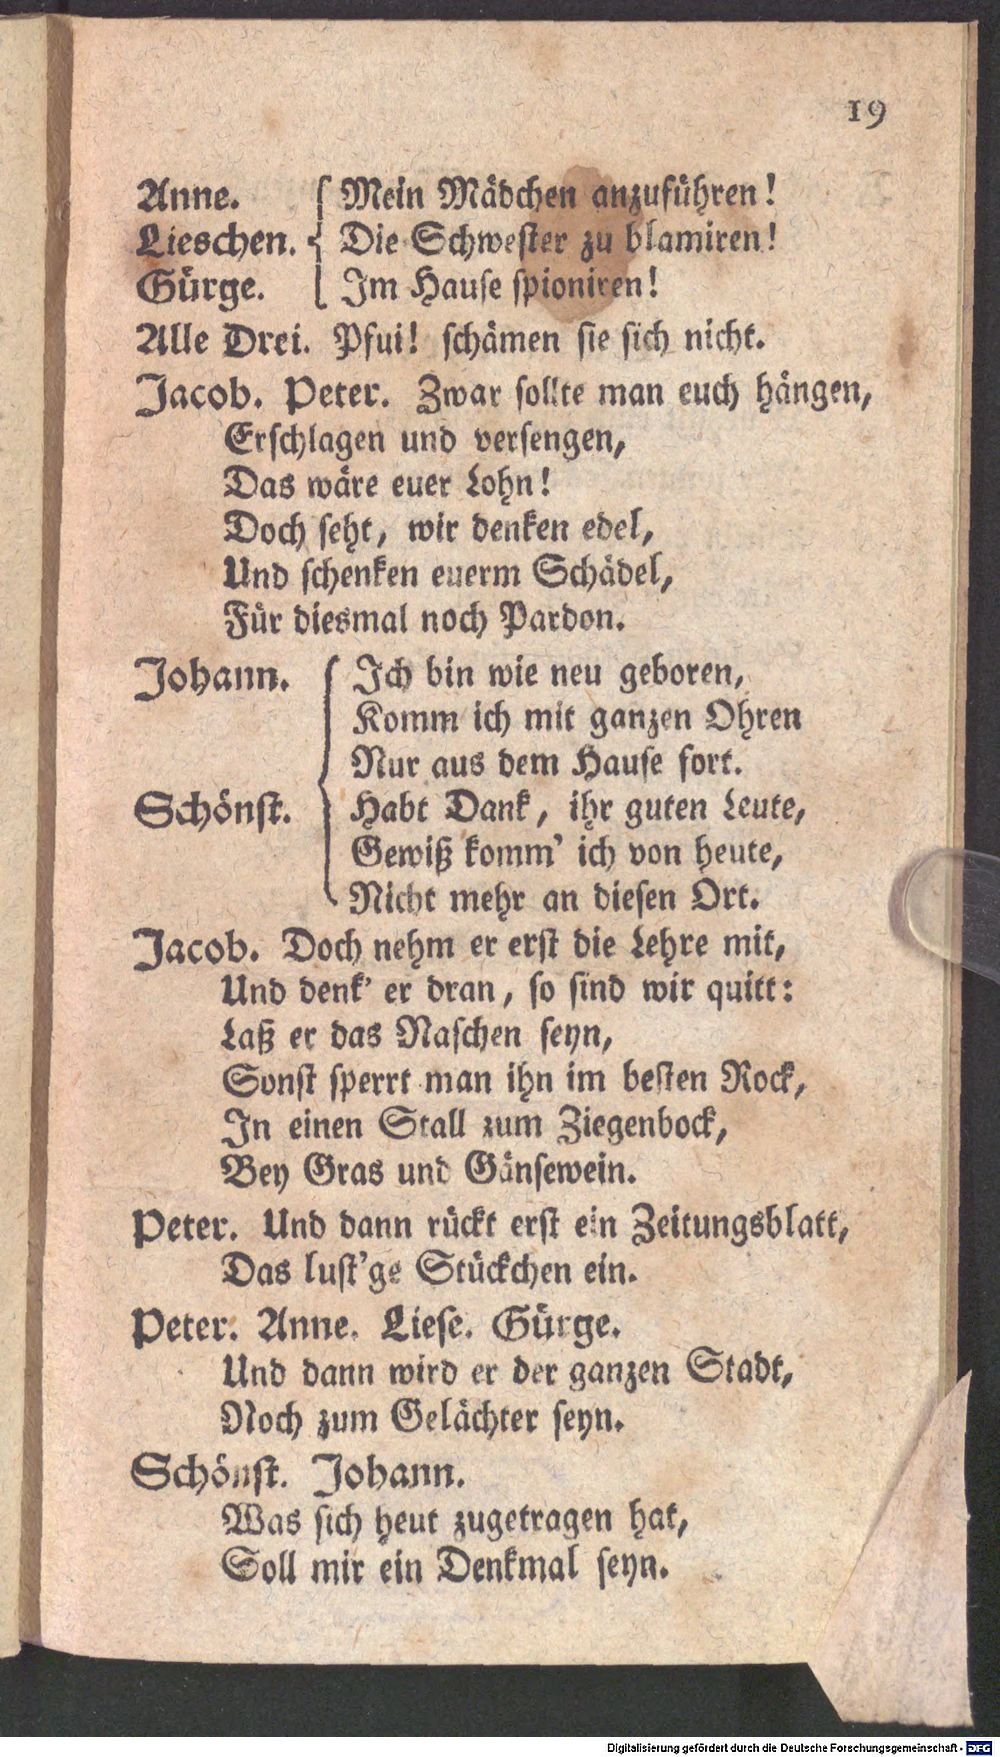 19
Anne. Mein Mädchen anzuführen!
Lieschen. Die Schwester zu blamiren!
Gürge. Im Hause spioniren!
Alle Drei. Pfui! schämen sie sich nicht.
Jacob. Peter. Zwar sollte man euch hängen,
Erschlagen und versengen,
Das wäre euer Lohn!
Doch seht, wir denken edel,
Und schenken euerm Schädel,
Für diesmal noch Pardon.
Johann. Ich bin wie neu geboren,
Komm ich mit ganzen Ohren
Nur aus dem Hause fort.
Schönst. Habt Dank, ihr guten Leute,
Gewiß komm' ich von heute,
Nicht mehr an diesen Ort.
Jacob. Doch nehm er erst die Lehre mit,
Und denk' er dran, so sind wir quitt:
Laß er das Naschen seyn,
Sonst sperrt man ihn im besten Rock,
In einen Stall zum Ziegenbock,
Bey Gras und Gänsewein.
Peter. Und dann rückt erst ein Zeitungsblatt,
Das lust'ge Stückchen ein.
Peter. Anne. Liese. Gürge.
Und dann wird er der ganzen Stadt,
Noch zum Gelächter seyn.
Schönst. Johann.
Was sich heut zugetragen hat,
Soll mir ein Denkmal seyn.
Digitalisierung gefördert durch die Deutsche Forschungsgemeinschaft - DFG